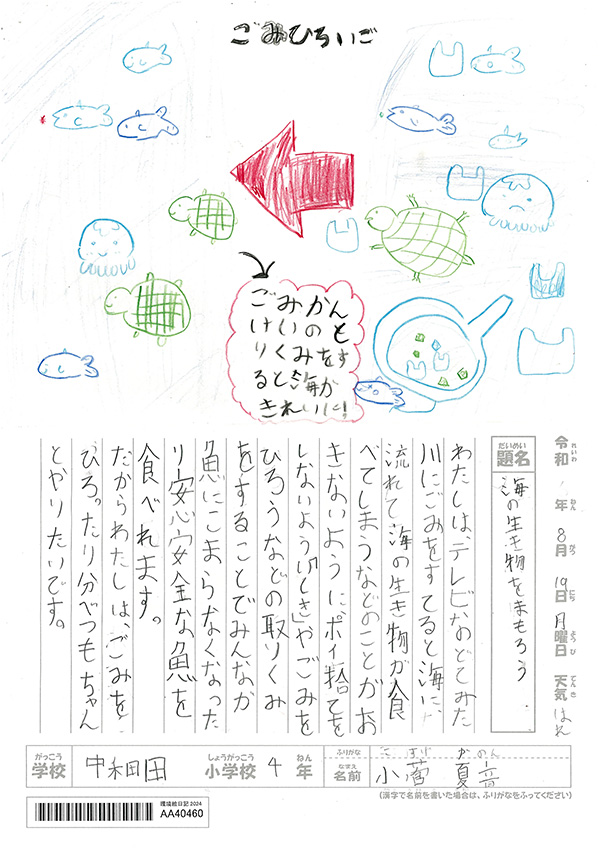 ごみひろいご
ごみかん
けいのと
りくみをす
ると海が
きれいに!
令和 年 8月 19日 月曜日 天気 はれ
れいわ ねん がつ にち ようび てんき
だいめい
題名
海の生き物をまもろう
わたしは、テレビなどでみた
川にごみをすてると海に、
流れて海の生き物が食
べてしまうなどのことがお
きないようにポイ捨てを
しないよう「いしき」やごみを
ひろうなどの取りくみ
をすることでみんなが
魚にこまらなくなった
り安心安全な魚を
食べれます。
だからわたしは、ごみを
ひろったり分べつもちゃん
とやりたいです。
がっこう しょうがっこう ねん ふりがな こすげ かのん
学校 中和田 小学校 4 年 なまえ 名前 小菅 夏音
(漢字で名前を書いた場合は、ふりがなをふってください)
環境絵日記 2024
AA40460